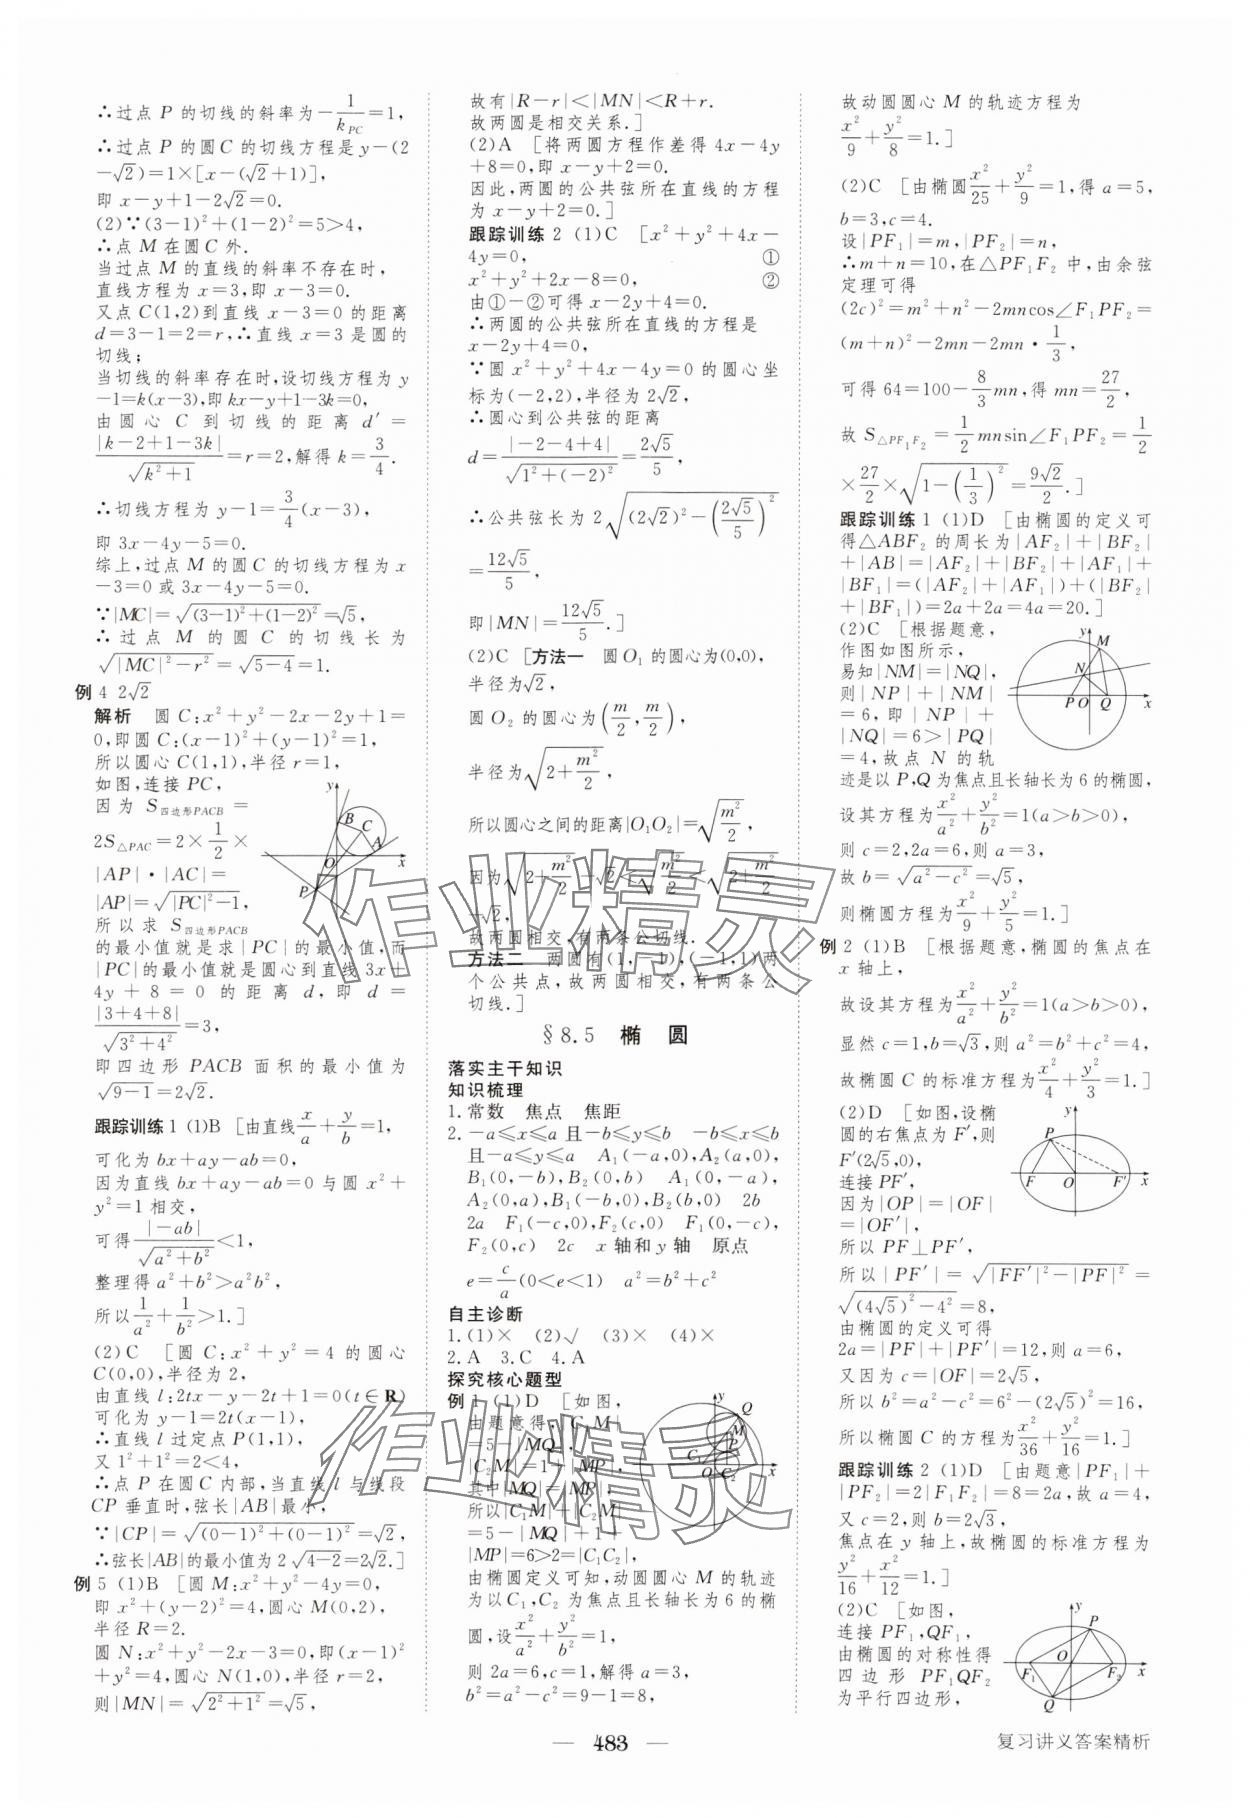 ∴过点 P 的切线的斜率为 −1/k_PC=1,
∴过点 P 的圆 C 的切线方程是 y−(2
−√2)=1×[x−(√2+1)],
即 x−y+1−2√2=0.
(2)∵(3−1)²+(1−2)²=5>4,
∴点 M 在圆 C 外.
当过点 M 的直线的斜率不存在时,
直线方程为 x=3,即 x−3=0.
又点 C(1,2)到直线 x−3=0 的距离
d=3−1=2=r,∴直线 x=3 是圆的
切线;
当切线的斜率存在时,设切线方程为 y
−1=k(x−3),即 kx−y+1−3k=0,
由圆心 C 到切线的距离 d′=
|k−2+1−3k|/√(k²+1)=r=2,解得 k=3/4.
∴切线方程为 y−1=3/4(x−3),
即 3x−4y−5=0.
综上,过点 M 的圆 C 的切线方程为 x
−3=0 或 3x−4y−5=0.
∵|MC|=√((3−1)²+(1−2)²)=√5,
∴过点 M 的圆 C 的切线长为
√(|MC|²−r²)=√(5−4)=1.
例 4 2√2
解析 圆 C:x²+y²−2x−2y+1=
0,即圆 C:(x−1)²+(y−1)²=1,
所以圆心 C(1,1),半径 r=1,
如图,连接 PC,
因为 S四边形PACB=
2S△PAC=2×1/2×
|AP|·|AC|=
|AP|=√(|PC|²−1),
所以求 S四边形PACB
的最小值就是求|PC|的最小值,而
|PC|的最小值就是圆心到直线 3x+
4y+8=0 的距离 d,即 d=
|3+4+8|/√(3²+4²)=3,
即四边形 PACB 面积的最小值为
√(9−1)=2√2.
跟踪训练 1 (1)B [由直线 x/a+y/b=1,
可化为 bx+ay−ab=0,
因为直线 bx+ay−ab=0 与圆 x²+
y²=1 相交,
可得|−ab|/√(a²+b²)<1,
整理得 a²+b²>a²b²,
所以 1/a²+1/b²>1.]
(2)C [圆 C:x²+y²=4 的圆心
C(0,0),半径为 2,
由直线 l:2tx−y−2t+1=0(t∈R)
可化为 y−1=2t(x−1),
∴直线 l 过定点 P(1,1),
又 1²+1²=2<4,
∴点 P 在圆 C 内部,当直线 l 与线段
CP 垂直时,弦长|AB|最小,
∵|CP|=√((0−1)²+(0−1)²)=√2,
∴弦长|AB|的最小值为 2√(4−2)=2√2.]
例 5 (1)B [圆 M:x²+y²−4y=0,
即 x²+(y−2)²=4,圆心 M(0,2),
半径 R=2.
圆 N:x²+y²−2x−3=0,即(x−1)²
+y²=4,圆心 N(1,0),半径 r=2,
则|MN|=√(2²+1²)=√5,
故有|R−r|<|MN|<R+r.
故两圆是相交关系.]
(2)A [将两圆方程作差得 4x−4y
+8=0,即 x−y+2=0.
因此,两圆的公共弦所在直线的方程
为 x−y+2=0.]
跟踪训练 2 (1)C [x²+y²+4x−
4y=0, ①
x²+y²+2x−8=0, ②
由①−②可得 x−2y+4=0.
∴两圆的公共弦所在直线的方程是
x−2y+4=0,
∵圆 x²+y²+4x−4y=0 的圆心坐
标为(−2,2),半径为 2√2,
∴圆心到公共弦的距离
d=|−2−4+4|/√(1²+(−2)²)=2√5/5,
∴公共弦长为 2√((2√2)²−(2√5/5)²)
=12√5/5,
即|MN|=12√5/5.]
(2)C [方法一 圆 O₁ 的圆心为(0,0),
半径为√2,
圆 O₂ 的圆心为(m/2,m/2),
半径为√(2+m²/2),
所以圆心之间的距离|O₁O₂|=√(m²/2),
因为√(2+m²/2)+√2<√(m²/2)<√(2+m²/2)
−√2,
故两圆相交,有两条公切线.
方法二 两圆有(1,−1),(−1,1)两
个公共点,故两圆相交,有两条公
切线.]
§8.5 椭 圆
落实主干知识
知识梳理
1.常数 焦点 焦距
2.−a≤x≤a 且−b≤y≤b −b≤x≤b
且−a≤y≤a A₁(−a,0),A₂(a,0),
B₁(0,−b),B₂(0,b) A₁(0,−a),
A₂(0,a),B₁(−b,0),B₂(b,0) 2b
2a F₁(−c,0),F₂(c,0) F₁(0,−c),
F₂(0,c) 2c x 轴和 y 轴 原点
e=c/a(0<e<1) a²=b²+c²
自主诊断
1.(1)× (2)√ (3)× (4)×
2.A 3.C 4.A
探究核心题型
例 1 (1)D [如图,
由题意得,|C₁M|
=5−|MQ|,
|C₂M|=1+|MP|,
其中|MQ|=|MP|,
所以|C₁M|+|C₂M|
=5−|MQ|+1+
|MP|=6>2=|C₁C₂|
由椭圆定义可知,动圆圆心 M 的轨迹
为以 C₁,C₂ 为焦点且长轴长为 6 的椭
圆,设 x²/a²+y²/b²=1,
则 2a=6,c=1,解得 a=3,
b²=a²−c²=9−1=8,
故动圆圆心 M 的轨迹方程为
x²/9+y²/8=1.]
(2)C [由椭圆 x²/25+y²/9=1,得 a=5,
b=3,c=4.
设|PF₁|=m,|PF₂|=n,
∴m+n=10,在△PF₁F₂ 中,由余弦
定理可得
(2c)²=m²+n²−2mncos∠F₁PF₂=
(m+n)²−2mn−2mn·1/3,
可得 64=100−8/3mn,得 mn=27/2,
故 S△PF₁F₂=1/2mnsin∠F₁PF₂=1/2
×27/2×√(1−(1/3)²)=9√2/2.]
跟踪训练 1 (1)D [由椭圆的定义可
得△ABF₂ 的周长为|AF₂|+|BF₂|
+|AB|=|AF₂|+|BF₂|+|AF₁|+
|BF₁|=(|AF₂|+|AF₁|)+(|BF₂|
+|BF₁|)=2a+2a=4a=20.]
(2)C [根据题意,
作图如图所示,
易知|NM|=|NQ|,
则|NP|+|NM|
=6,即|NP|+
|NQ|=6>|PQ|
=4,故点 N 的轨
迹是以 P,Q 为焦点且长轴长为 6 的椭圆,
设其方程为 x²/a²+y²/b²=1(a>b>0),
则 c=2,2a=6,则 a=3,
故 b=√(a²−c²)=√5,
则椭圆方程为 x²/9+y²/5=1.]
例 2 (1)B [根据题意,椭圆的焦点在
x 轴上,
故设其方程为 x²/a²+y²/b²=1(a>b>0),
显然 c=1,b=√3,则 a²=b²+c²=4,
故椭圆 C 的标准方程为 x²/4+y²/3=1.]
(2)D [如图,设椭
圆的右焦点为 F′,则
F′(2√5,0),
连接 PF′,
因为|OP|=|OF|
=|OF′|,
所以 PF⊥PF′,
所以|PF′|=√(|FF′|²−|PF|²)=
√((4√5)²−4²)=8,
由椭圆的定义可得
2a=|PF|+|PF′|=12,则 a=6,
又因为 c=|OF|=2√5,
所以 b²=a²−c²=6²−(2√5)²=16,
所以椭圆 C 的方程为 x²/36+y²/16=1.]
跟踪训练 2 (1)D [由题意|PF₁|+
|PF₂|=2|F₁F₂|=8=2a,故 a=4,
又 c=2,则 b=2√3,
焦点在 y 轴上,故椭圆方程为
y²/16+x²/12=1.]
(2)C [如图,
连接 PF₁,QF₁,
由椭圆的对称性得
四边形 PF₁QF₂
为平行四边形,
— 483 —
复习讲义答案精析
作业精灵
作业精灵